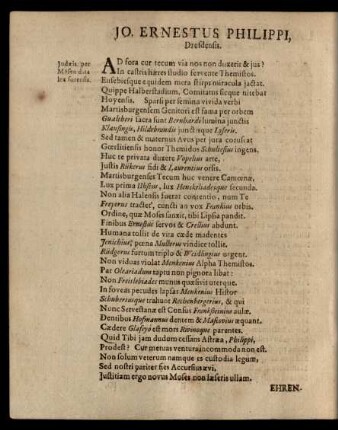 JO. ERNESTUS PHILIPPI,
Dresdensis.
Judæis per Mosen data lex forensis.
AD fora cur tecum via non non duxerit & jus?
In castris hæres studio fervente Themistos.
Eusebiesque equidem meta stirps miracula jactat.
Quippe Halberstadium, Comitatus sicque nitebat
Hoyensis. Sparsi per semina vivida verbi
Martisburgensem Genitori est fama per orbem
Gualebere iacra sunt Bernhardi lumina junctis
Klausingio, Hildebrandio junctisque Laferio.
Sed tamen & maternus Avus per jura coruscat
Gorslitiensis honor Themidos Schultesius ingens.
Huc te privata duxere Vopelius arte,
Justis Rükerus fidi & Laurentius orsis.
Martisburgenses Tecum huc venere Camœnæ,
Lux prima Ilistius, lux Henckeliadesque secunda.
Non alia Halensis fuerat contentio, num Te
Freyerus tractet, cuncti an vox Frankius orbis.
Ordine, quæ Moses sanxit, tibi Lipsia pandit.
Finibus Ernestus servos & Crellius abdunt.
Humana tollis de vita cæde madentes
Jenichius; pœna Musterus vindice tollit.
Rüdgerus furtum triplo & Weidlingius urgent.
Non viduas violat Menkenius Alpha Themistos.
Par Oleariadum raptu non pignora libat:
Non Freislebiades munus quæsivit uterque.
In foveas pecudes lapsas Menkenius Histor
Schubertusque trahunt Rechenbergerius, & qui
Nunc Servestanæ est Consus Frankensteinius aulæ.
Dentibus Hofmannus dentem & Mascovius æquant.
Cædere Glafeyi est mors Rivinoque parentes.
Quid Tibi jam dudum cessans Astræa, Philippi,
Prodest? Cur mensus ventura jocommoda non est.
Non solum veterum namque es custodia legum,
Sed nostri pariter fies Accursius ævi.
Justitiam ergo novus Moses con inferis ullam.
EHREN-